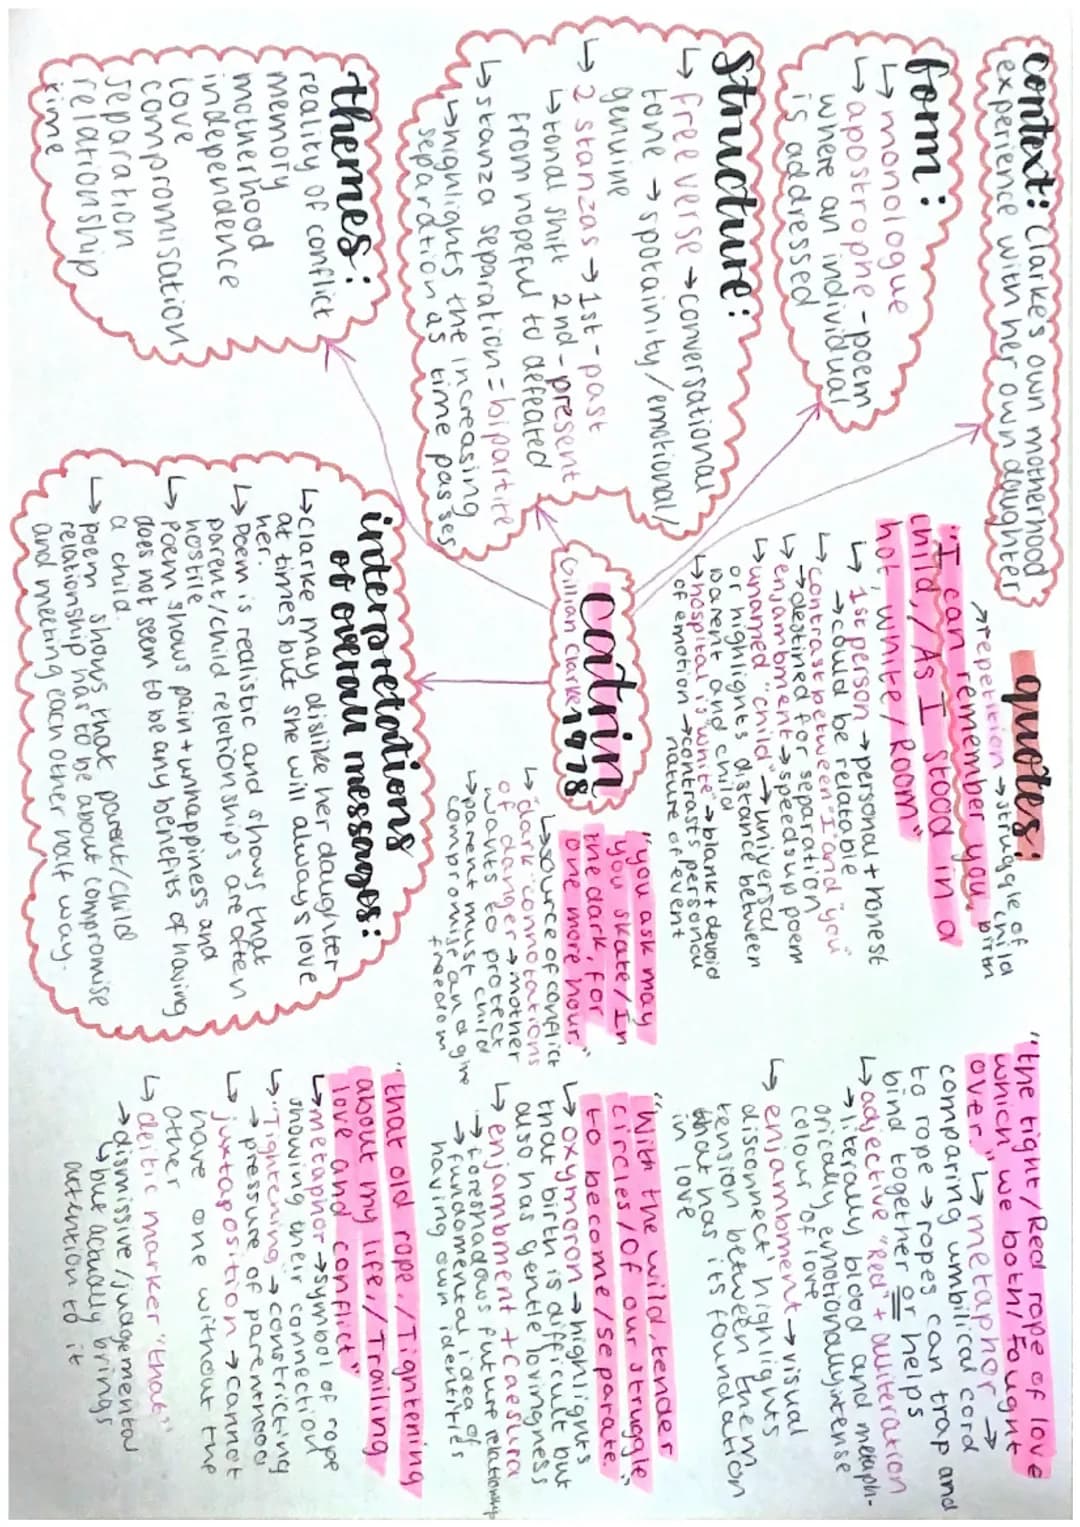 context: Clarke's own motherhood
experience with her own daughter
form:
↳ monologue
↳ apostrophe - poem
where an individual
is addressed
structure:
↳ free verse → conversational
tone → spotainity/emotional/
genuine
↳ 2 stanzas → 1st - past
2nd - present
↳ tonal shift
from hopeful to defeated
↳ stanza separation = bipartite
↳ highlights the increasing
separation as time passes
themes:
reality of conflict
memory
motherhood
independence
love
compromisation
separation
relationship
time
catrin
Gillian Clarke 1978
interpretations
of overall messages:
↳ clarke may dislike her daughter
at times but she will always love
her.
↳ Poem is realistic and shows that
parent/child relationships are often
hostile
↳ Poem shows pain + unhappiness and
does not seem to be any benefits of having
a child.
↳ poem shows that parent/child
relationship has to be about compromise
and meeting each other half way.
quotes:
→ repetition → struggle of
child birth
"I can remember you,
child, / As I stood in a
hot, white / Room"
↳ 1st person → personal + honest
→ could be relatable
↳ contrast between "I" and "you"
→ destined for separation
↳ enjambment → speeds up poem
↳ unamed "child" → universal
or highlights distance between
parent and child
↳ hospital is "white" → blank + devoid
of emotion → contrasts personal
nature of event
"you ask may
you skate / In
the dark, for
one more hour."
↳ source of conflict
↳ "dark" connotations
of danger → mother
wants to protect
child
↳ parent must
compromise and give
freedom
"the tight / Red rope of love
which we both / Fought
over." ↳ metaphor →
comparing umbilical cord
to rope → ropes can trap and
bind together or helps
↳ adjective "Red" + alliteration
→ literally blood and metaph-
orically emotionally intense
colour of love
↳ enjambment → visual
disconnect highlights
tension between them
that has its foundation
in love
"With the wild, tender
circles / Of our struggle"
to become / separate
↳ oxymoron → highlights
that birth is difficult but
also has gentle lovingness
↳ enjambment + caesura
→ foreshadows future relationship
→ fundamental idea of
having own identities
"that old rope, / Tightening
about my life, / Trailing
love and conflict"
↳ metaphor → symbol of rope
showing their connection
↳ "Tightening" → constricting
→ pressure of parenthood
↳ juxtaposition → cannot
have one without the
other
↳ deitic marker "that"
→ dismissive/judgemental
↳ but actually brings
attention to it